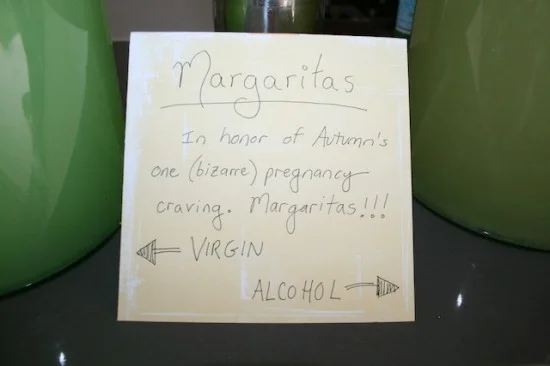 Margaritas
In honor of Autumn's
one (bizarre) pregnancy
craving. Margaritas!!!
VIRGIN
ALCOHOL